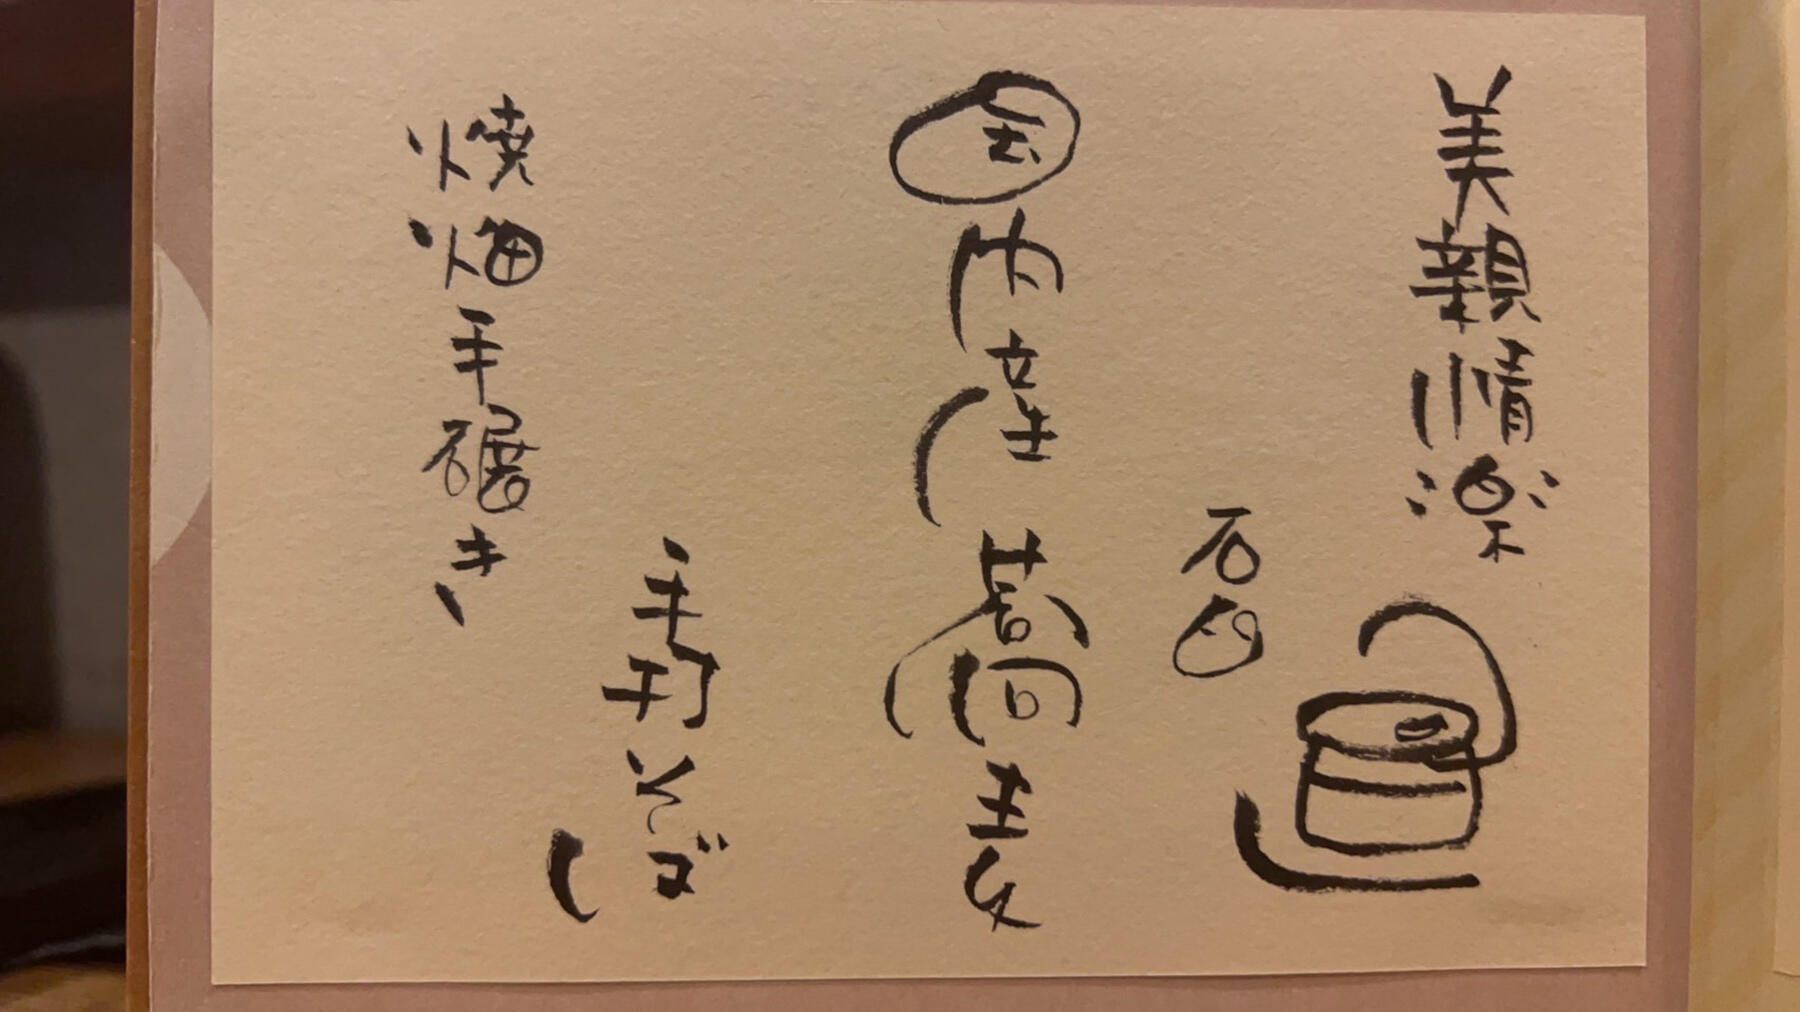 美親情楽
石臼
国内産蕎麦
手打そば
焼畑手碾き